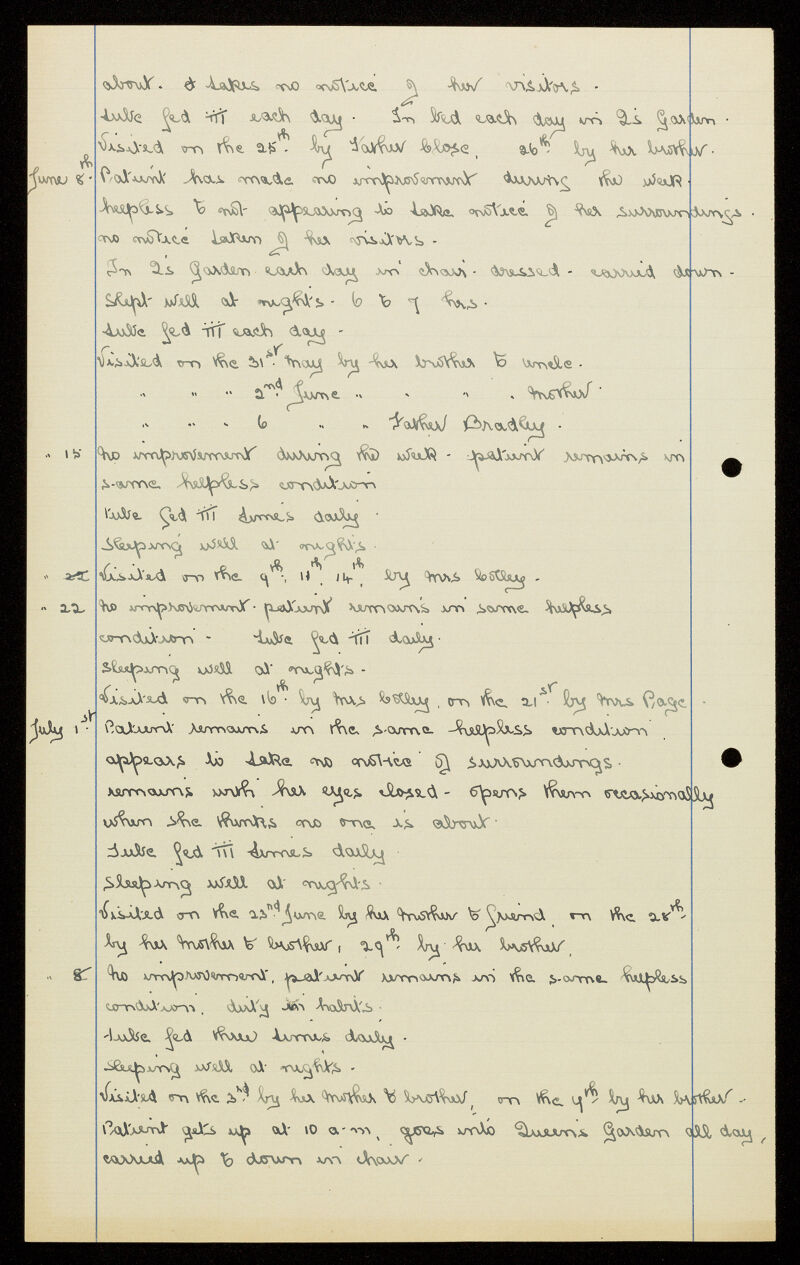 about. & takes no notice of her visitors.
tube fed III each day. In bed each day in Q's Garden.
Visited on the 25th. by Father Close, 26th. by her brother.
June 8th. Patient has made no improvement during the week.
helpless & not appearing to take notice of her surroundings.
no notice taken of her visitors.
In Q's Garden each day in chair. dressed - carried down.
Slept well at nights. 6 to 7 hrs.
tube fed III each day.
Visited on the 31st. May by her brother & uncle.
" " " 2nd. June " " " " Mother.
" " " 6 " " Father Bradley.
" 15 No improvement during the week. patient remains in
same helpless condition
tube fed III times daily.
Sleeping well at nights.
" 22 Visited on the 9th, 11th, 14th, by Mrs Colley.
" 22 No improvement. patient remains in same helpless
condition. tube fed III daily.
Sleeping well at nights.
Visited on the 16th. by Mrs Colley, on the 21st. by Mrs Page.
July 1st Patient remains in the same helpless condition.
appears to take no notice of surroundings.
remains with her eyes closed - opens them occasionally
when she thinks no one is about.
Tube fed III times daily.
Sleeping well at nights.
Visited on the 23rd June by her Mother & friend, on the 28th.
by her Mother & brother, 29th. by her brother.
" 8 No improvement, patient remains in the same helpless
condition, dirty in habits.
tube fed three times daily.
Sleeping well at nights.
Visited on the 3rd by her Mother & brother, on the 7th. by her brother.
Patient gets up at 10 a.m, goes into Queen's Garden all day,
carried up & down in chair.